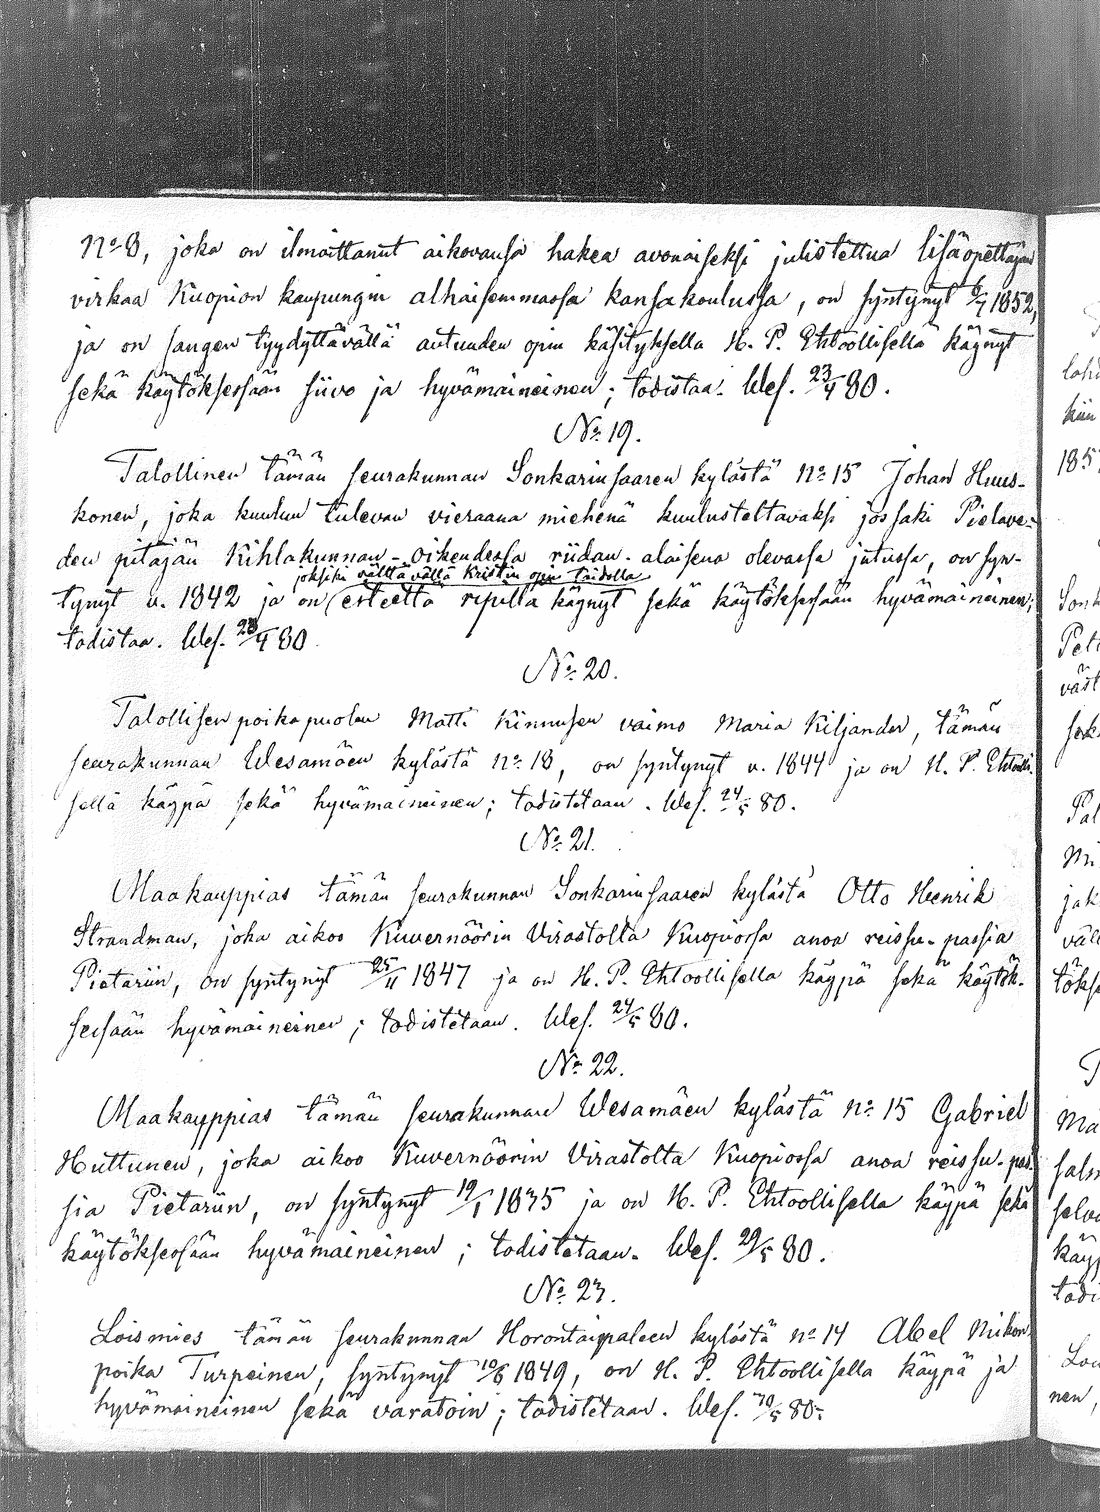 N:o 8, joka on ilmoittanut aikovansa hakea avonaiseksi julistettua lisäopettajan
virkaa Kuopion kaupungin alhaisemmassa kansakoulussa, on syntynyt 6/7 1852,
ja on sangen tyydyttävällä autuuden opin käsityksellä H. P. Ehtoollisella käynyt
sekä käytöksessään siivo ja hyvämaineinen; todistaa. Wes. 23/4 80.
N:o 19.
Talollinen tämän seurakunnan Sonkarinsaaren kylästä n:o 15 Johan Huus-
konen, joka kuuluu tulevan vieraana miehenä kuulusteltavaksi jossaki Pielave-
den pitäjän Kihlakunnan-oikeudessa riidan-alaisena olevassa jutussa, on syn-
joksikin välttävällä Kristin opin taidolla
tynyt v. 1842 ja on (esteettä ripillä käynyt sekä käytöksessään hyvämaineinen;
todistaa. Wes. 23/4 80.
N:o 20.
Talollisen poikapuolen Matti Kinnusen vaimo Maria Kiljander, tämän
seurakunnan Wesamäen kylästä n:o 18, on syntynyt v. 1844 ja on H. P. Ehtoolli-
sella käypä sekä hyvämaineinen; todistetaan. Wes. 24/5 80.
N:o 21.
Maakauppias tämän seurakunnan Sonkarinsaaren kylästä Otto Henrik
Strandman, joka aikoo Kuvernöörin Virastolta Kuopiossa anoa reissu-passia
Pietariin, on syntynyt 25/11 1847 ja on H. P. Ehtoollisella käypä sekä käytök-
sessään hyvämaineinen; todistetaan. Wes. 24/5 80.
N:o 22.
Maakauppias tämän seurakunnan Wesamäen kylästä n:o 15 Gabriel
Huttunen, joka aikoo Kuvernöörin Virastolta Kuopiossa anoa reissu-pas-
sia Pietariin, on syntynyt 19/1 1835 ja on H. P. Ehtoollisella käypä sekä
käytöksessään hyvämaineinen; todistetaan. Wes. 29/5 80.
N:o 23.
Loismies tämän seurakunnan Horontaipaleen kylästä n:o 14 Abel Mikon
poika Turpeinen, syntynyt 10/6 1849, on H. P. Ehtoollisella käypä ja
hyvämaineinen sekä varatoin; todistetaan. Wes. 30/5 80.